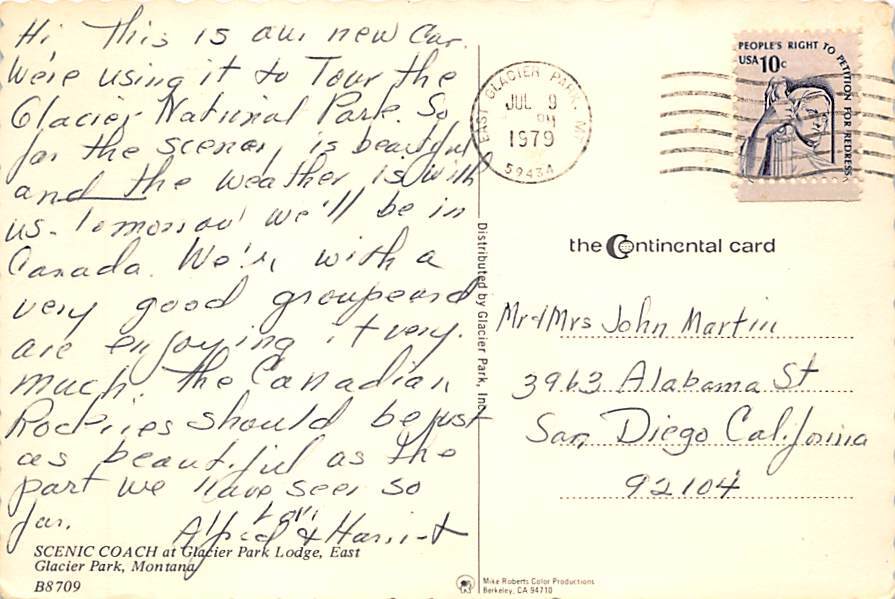 Hi, This is our new Car.
We're using it to Tour the
Glacier National Park. So
far the scenery is beautiful
and the weather is with
us. Tomorrow we'll be in
Canada. We're with a
very good group and
are enjoying it very
much. The Canadian
Rockies should be just
as beautiful as the
part we have seen so
far.
Love
Alfred & Harriet
SCENIC COACH at Glacier Park Lodge, East
Glacier Park, Montana
B8709
Distributed by Glacier Park, Inc.
Mike Roberts Color Productions
Berkeley, CA 94710
EAST GLACIER PARK, MT
JUL 9
PM
1979
59434
PEOPLE'S RIGHT TO PETITION FOR REDRESS
USA 10c
the Continental card
Mr & Mrs John Martin
3963 Alabama St
San Diego California
92104